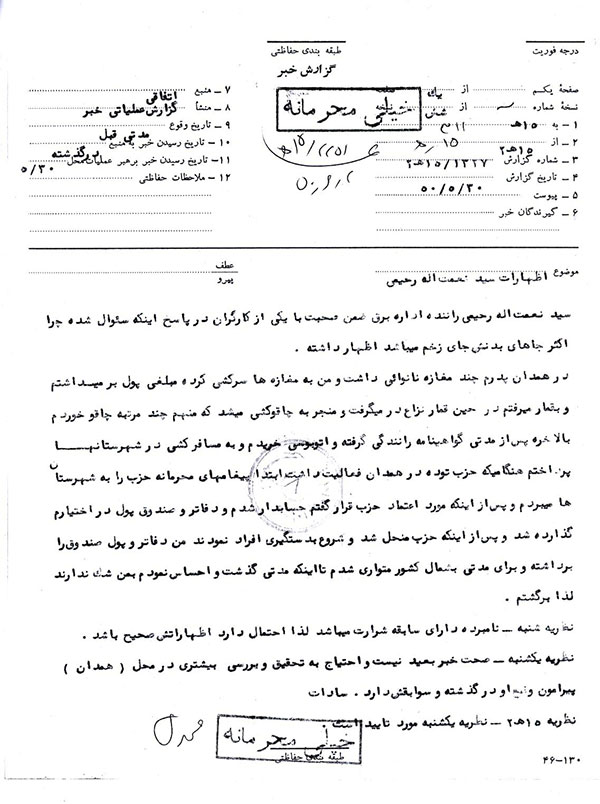 درجه فوریت
طبقه بندی حفاظتی
گزارش خبر
خیلی محرمانه
صفحهٔ یکم از یک صفحه
نسخهٔ شماره از نسخه
۱ – به ۱۵ه‍ ۳۱۱
۲ – از ۱۵ه‍۲
۳ – شماره گزارش ۱۵/۱۳۲۷ه‍۲
۴ – تاریخ گزارش ۵۰/۵/۳۰
۵ – پیوست
۶ – گیرندگان خبر
۷ – منبع اتفاقی
۸ – منشأ گزارش عملیاتی خبر
۹ – تاریخ وقوع مدتی قبل
۱۰ – تاریخ رسیدن خبر به منبع برگذشته
۱۱ – تاریخ رسیدن خبر برهبر عملیات محل ۵/۳۰
۱۲ – ملاحظات حفاظتی
موضوع اظهارات سید نعمت اله رحیمی
عطف
پیرو
سید نعمت اله رحیمی راننده اداره برق ضمن صحبت با یکی از کارگران در پاسخ اینکه سئوال شده چرا
اکثر جاهای بدنش جای زخم میباشد اظهار داشته .
در همدان پدرم چند مغازه نانوائی داشت و من به مغازه ها سرکشی کرده مبلغی پول بر میداشتم
و بقمار میرفتم در حین قمار نزاع در میگرفت و منجر به چاقوکشی میشد که منهم چند مرتبه چاقو خوردم
بالاخره پس از مدتی گواهینامه رانندگی گرفته و اتوبوسی خریدم و به مسافرکشی در شهرستانها
پرداختم هنگامیکه حزب توده در همدان فعالیت داشت ابتدا پیغامهای محرمانه حزب را به شهرستان
ها میبردم و پس از اینکه مورد اعتماد حزب قرار گفتم حسابدار شدم و دفاتر و صندوق پول در اختیارم
گذارده شد و پس از اینکه حزب منحل شد و شروع بدستگیری افراد نمودند من دفاتر و پول صندوق را
برداشته و برای مدتی بشمال کشور متواری شدم تا اینکه مدتی گذشت و احساس نمودم بمن شک ندارند
لذا برگشتم .
نظریه شنبه – نامبرده دارای سابقه شرارت میباشد لذا احتمال دارد اظهاراتش صحیح باشد .
نظریه یکشنبه – صحت خبر بعید نیست و احتیاج به تحقیق و بررسی بیشتری در محل ( همدان )
پیرامون وضع او در گذشته و سوابقش دارد . سادات
نظریه ۱۵ه‍۲ – نظریه یکشنبه مورد تایید است
خیلی محرمانه
طبقه بندی حفاظتی
۴۶–۱۳۰